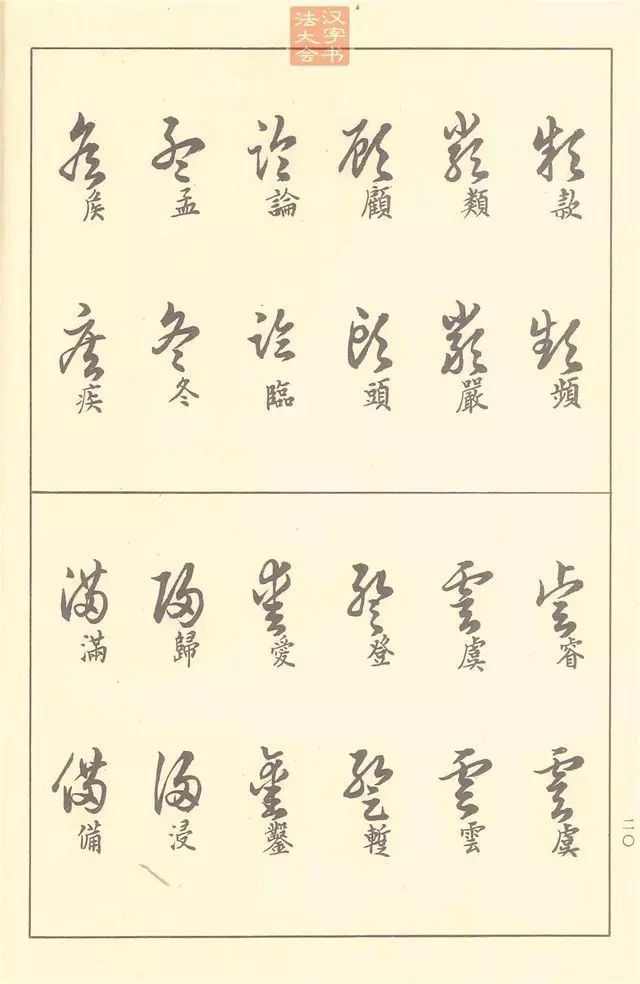 汉字书
法大会
款
頻
類
嚴
顧
頭
論
臨
孟
冬
矦
疾
睿
虞
虞
雲
登
愛
鑿
歸
浸
滿
備
二〇